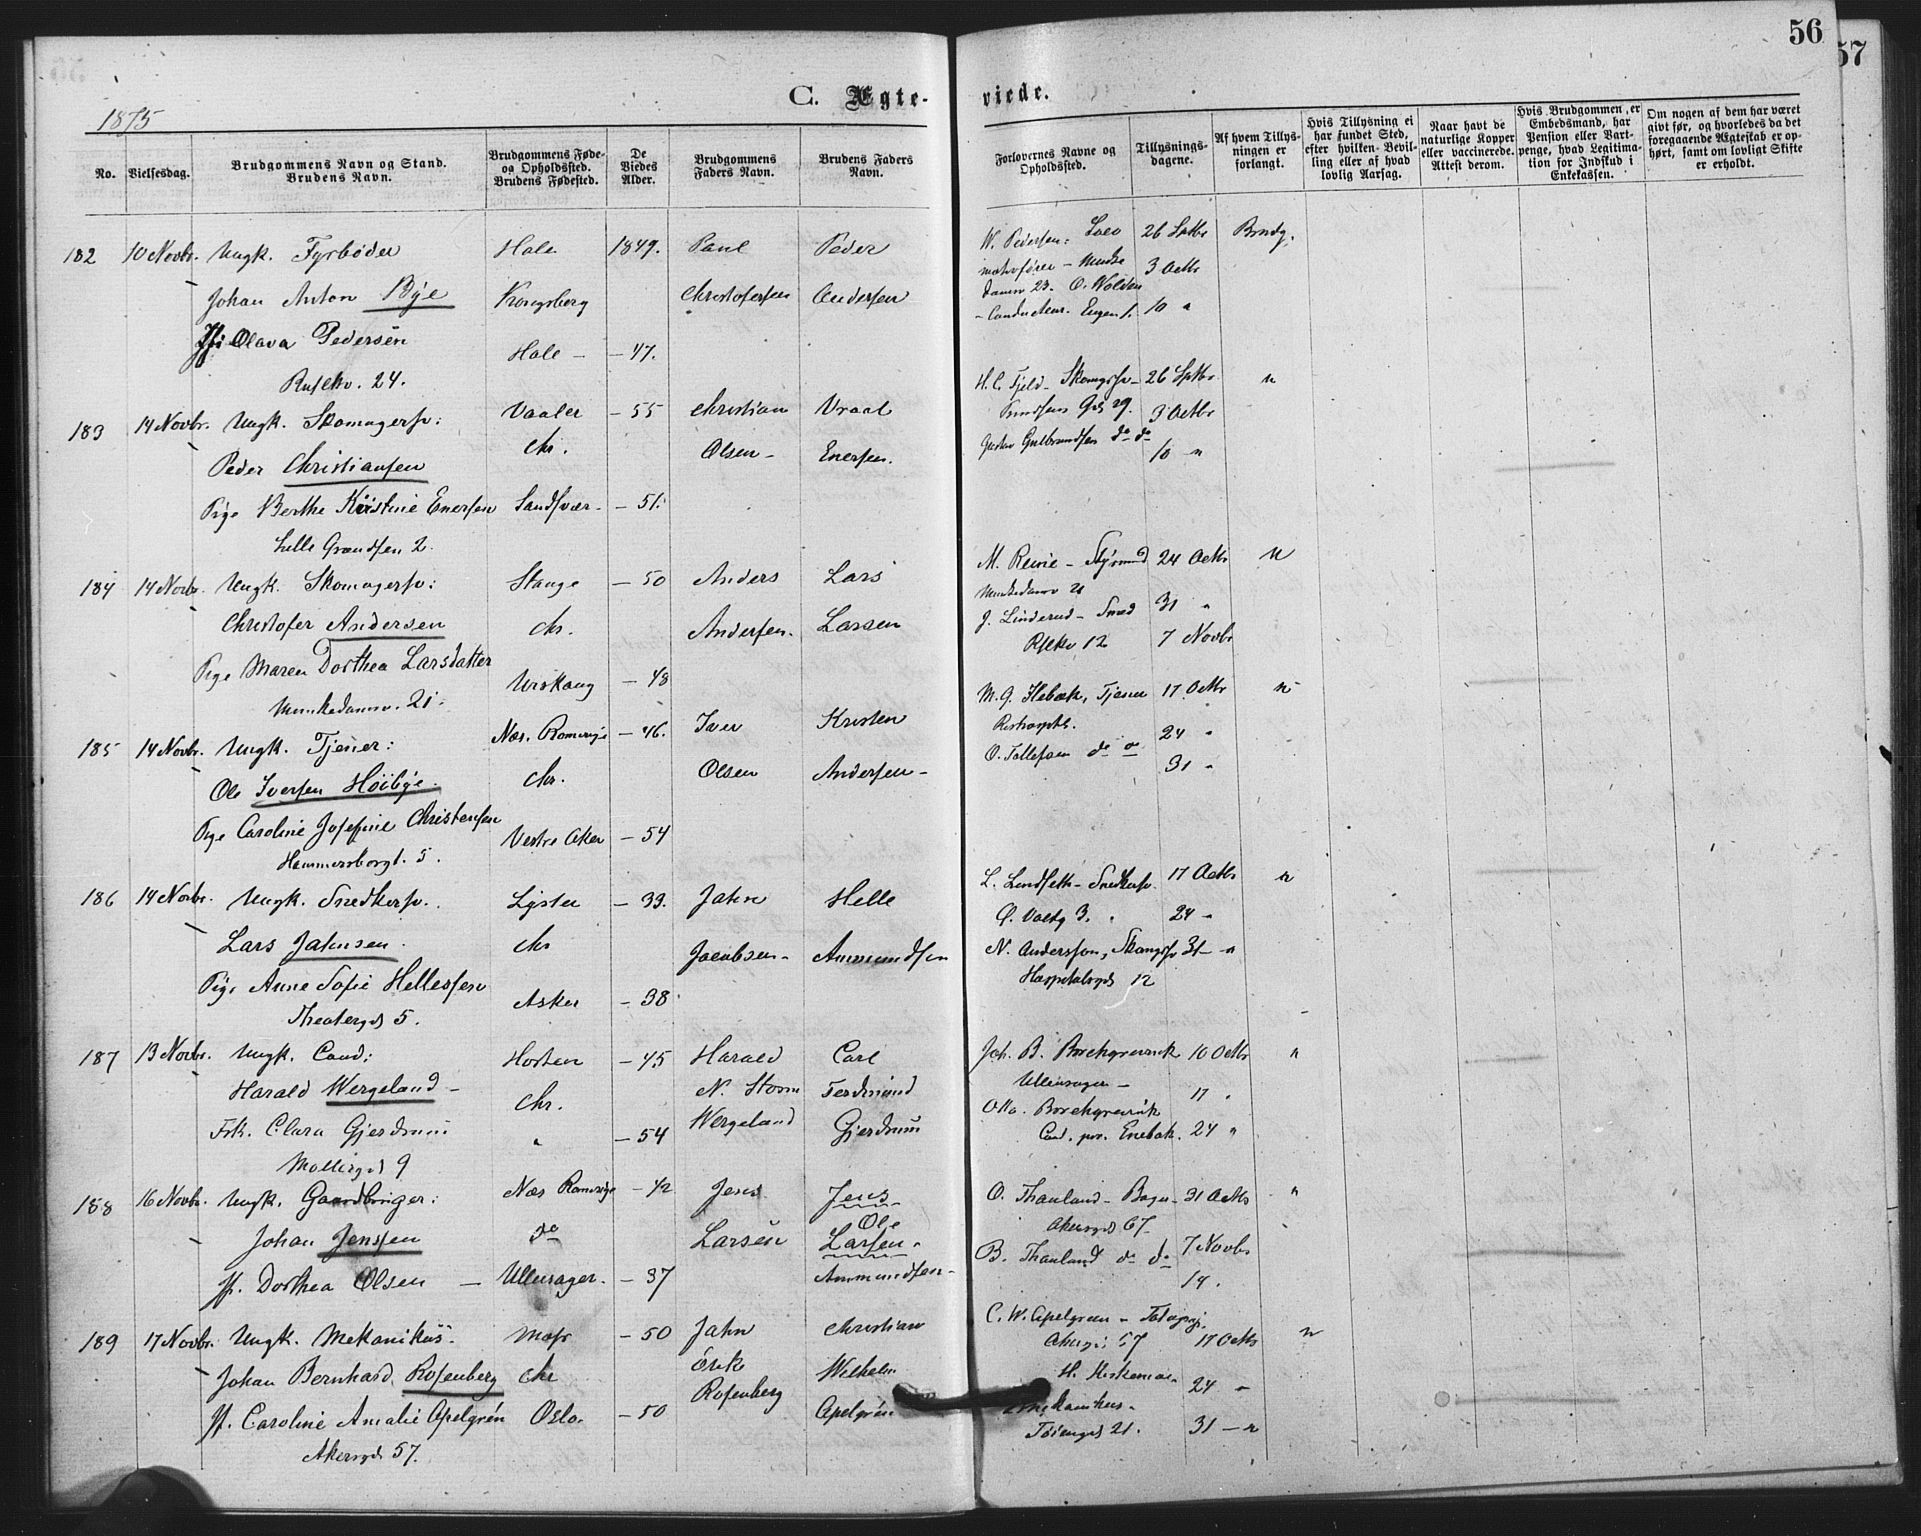 56
57
C. Ægte-viede.
1875
No.
Vielsesdag.
Brudgommens Navn og Stand.
Brudens Navn.
Brudgommens Føde-
og Opholdssted.
Brudens Fødested.
De
Viedes
Alder.
Brudgommens
Faders Navn.
Brudens Faders
Navn.
Forlovernes Navne og
Opholdssted.
Tillysnings-
dagene.
Af hvem Tillys-
ningen er
forlangt.
Hvis Tillysning ei
har fundet Sted,
efter hvilken Bevil-
ling eller af hvad
lovlig Aarsag.
Naar havt de
naturlige Kopper
eller vaccinerede.
Attest derom.
Hvis Brudgommen er
Embedsmand, har
Pension eller Vart-
penge, hvad Legitima-
tion for Indskud i
Enkekassen.
Om nogen af dem har været
givt før, og hvorledes da det
foregaaende Ægteskab er op-
hørt, samt om lovligt Skifte
er erholdt.
182 10 Novbr. Ungk. Fyrbøder Hole 1849. Paul Peder
Johan Anton Bye Kongsberg Christofersen Andersen
Olava Pedersen Hole - - 47.
24.
W. Pedersen: 26 Sptbr Brudg.
3 Octbr
23. O.
Conducteur. 1. 10 "
183 14 Novbr. Ungk. Skomagersv: Vaaler - 55 Christian
Peder Christiansen Chr. Olsen - Enersen.
Pige Berthe Kristine Enersen Sandsvær - - 51.
Lille Grændsen 2.
H. C. Fjeld - 26 Sptbr "
29. 3 Octbr
Gulbrandsen do do
10 "
184 14 Novbr. Ungk. Skomagersv: Stange - 50 Anders Lars
Christofer Andersen Chr. Andersen. Larsen
Pige Maren Dorthea Larsdatter Urskoug - 48
Munkedamsv. 21.
M. 24 Octbr "
Munkedamsv 21
J. Linderud - Sned 31 "
12 7 Novbr
185 14 Novbr. Ungk. Tjener: Næs. Romerige - 46. Iver Kristen
Ole Iversen Høibye. Chr. Olsen Andersen -
Pige Caroline Josefine Christensen Vestre Aker - 54
Hammersborgt. 5.
M. G. Tjener 17 Octbr "
24 "
O. Tollefsen do
31 "
186 14 Novbr. Ungk. Snedkersv. Lyster - 33. Jahn Helle
Lars Jahnsen. Chr Jacobsen - Ammundsen
Pige Anne Sofie Hellessen Asker - 38
Theatergd 5.
L. Snedkersv. 17 Octbr "
3. 24 -
N. Anderssen, 31 - "
Hospitalsgd 12
187 13 Novbr. Ungk. Cand: Horten - 45 Harald Carl
Harald Wergeland - Chr. N. Storm Ferdinand
Frk. Clara Gjerdrum " - 54 Wergeland Gjerdrum
Møllergd 9
Joh. B. Borchgrevink 10 Octbr "
Ullensager - 17 "
Otto. Borchgrevink
Enebak. 24 "
188 16 Novbr. Ungk. Gaardbruger: Næs Romerige - 42 Jens Jens
Ole
Johan Jenssen do Larsen Larsen.
Jf. Dorthea Olsen - Ullensager. - 37 Ammundsen -
O. Thauland - 31 Octbr "
Akersgd 67
B. Thauland do do 7 Novbr
14.
189 17 Novbr. Ungk. Mekanikus. Moss - 50 Jahn Christian
Johan Bernhard Rosenberg Chr Erik Wilhelm
Jf. Caroline Amalie Apelgrén Oslo. - 50 Rosenberg Apelgrén
Akersgd 57.
C. W. Apelgren -
57 17 Octbr "
H. 24 "
Tøiengd 21. 31 - "